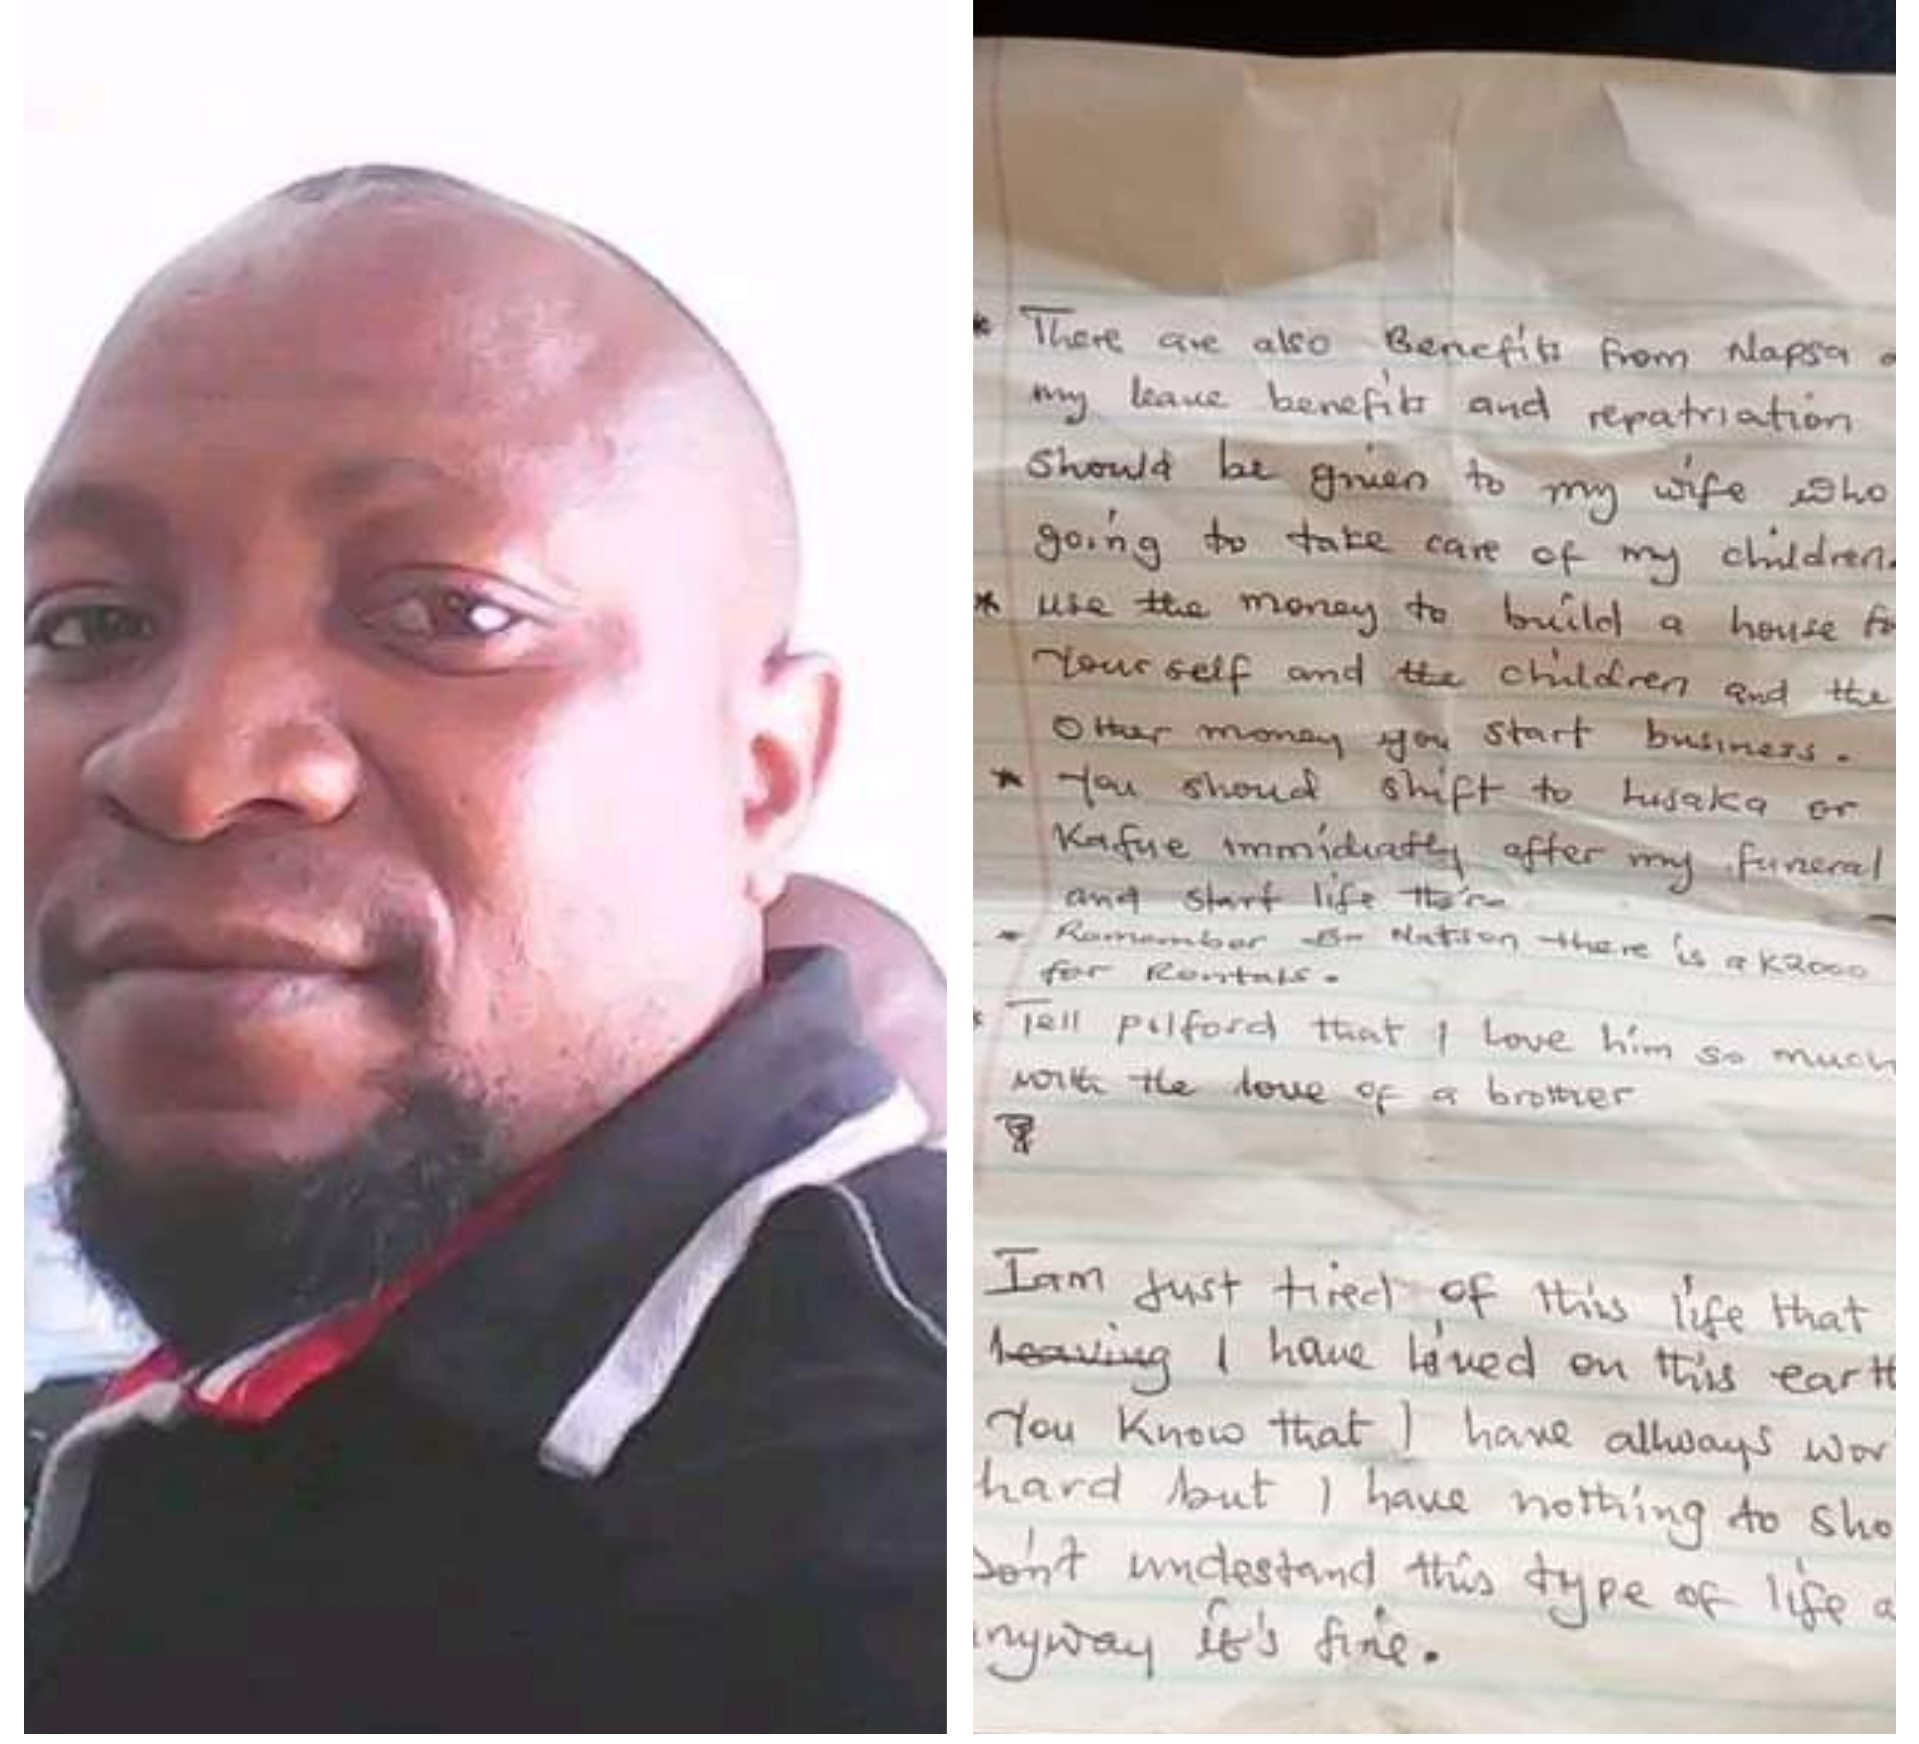 * There are also Benefits from Napsa
my leave benefits and repatriation
should be given to my wife who
going to take care of my children.
* use the money to build a house
Your self and the children and the
Other money you start business.
* You shoud shift to Lusaka or
Kafue immidiatly after my funeral
and start life
* Remember there is a K2000
for Rentals.
* Tell pilford that I Love him so much
with the love of a brother
I am Just tired of this life that
leaving I have lived on this earth
You Know that I have allways
hard but I have nothing to
Don't undestand this type of life
anyway it's fine.